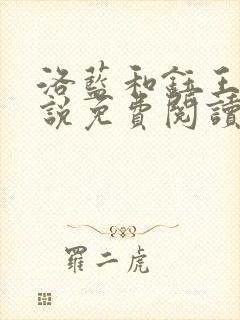 洛藍和鈺王
說免費閱讀
羅二虎